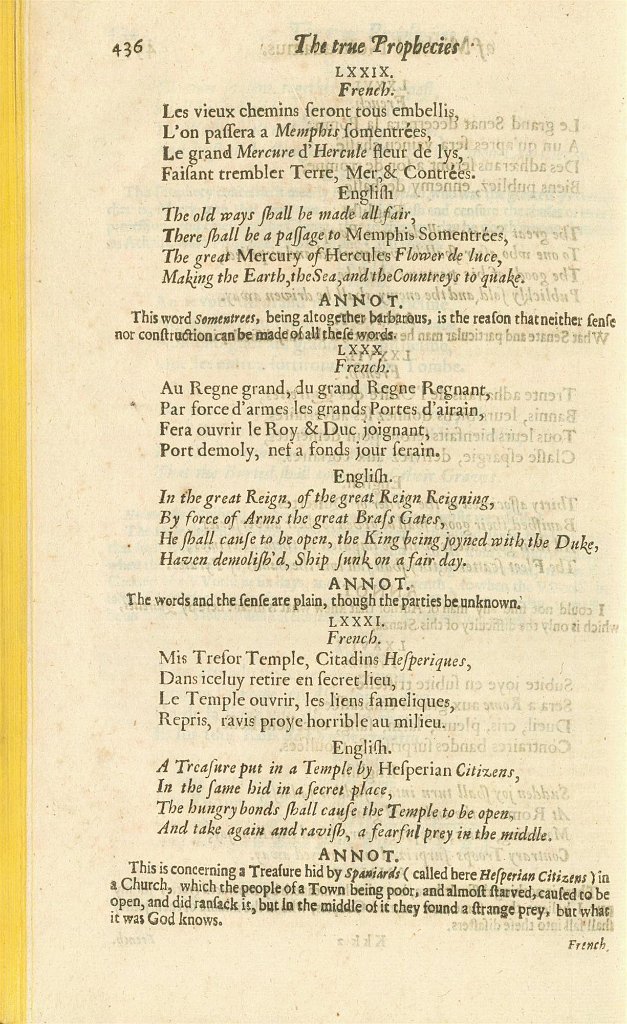 436 The true Prophecies
LXXIX.
French.
Les vieux chemins ſeront tous embellis,
L'on paſſera a Memphis ſomentrées,
Le grand Mercure d'Hercule fleur de lys,
Faiſant trembler Terre, Mer, & Contrées.
Engliſh
The old ways ſhall be made all fair,
There ſhall be a paſſage to Memphis Somentrées,
The great Mercury of Hercules Flower de luce,
Making the Earth, the Sea, and the Countreys to quake.
ANNOT.
This word Somentrees, being altogether barbarous, is the reason that neither ſenſe
nor conſtruction can be made of all theſe words.
LXXX.
French.
Au Regne grand, du grand Regne Regnant,
Par force d'armes les grands Portes d'airain,
Fera ouvrir le Roy & Duc joignant,
Port demoly, nef a fonds jour ſerain.
Engliſh.
In the great Reign, of the great Reign Reigning,
By force of Arms the great Braſs Gates,
He ſhall cauſe to be open, the King being joyned with the Duke,
Haven demoliſh'd, Ship ſunk on a fair day.
ANNOT.
The words and the ſenſe are plain, though the parties be unknown.
LXXXI.
French.
Mis Treſor Temple, Citadins Heſperiques,
Dans iceluy retire en ſecret lieu,
Le Temple ouvrir, les liens fameliques,
Repris, ravis proye horrible au milieu.
Engliſh.
A Treaſure put in a Temple by Heſperian Citizens,
In the ſame hid in a ſecret place,
The hungry bonds ſhall cauſe the Temple to be open,
And take again and raviſh, a fearful prey in the middle.
ANNOT.
This is concerning a Treaſure hid by Spaniards (called here Heſperian Citizens) in
a Church, which the people of a Town being poor, and almoſt ſtarved, cauſed to be
open, and did ranſack it, but in the middle of it they found a ſtrange prey, but what
it was God knows.
French